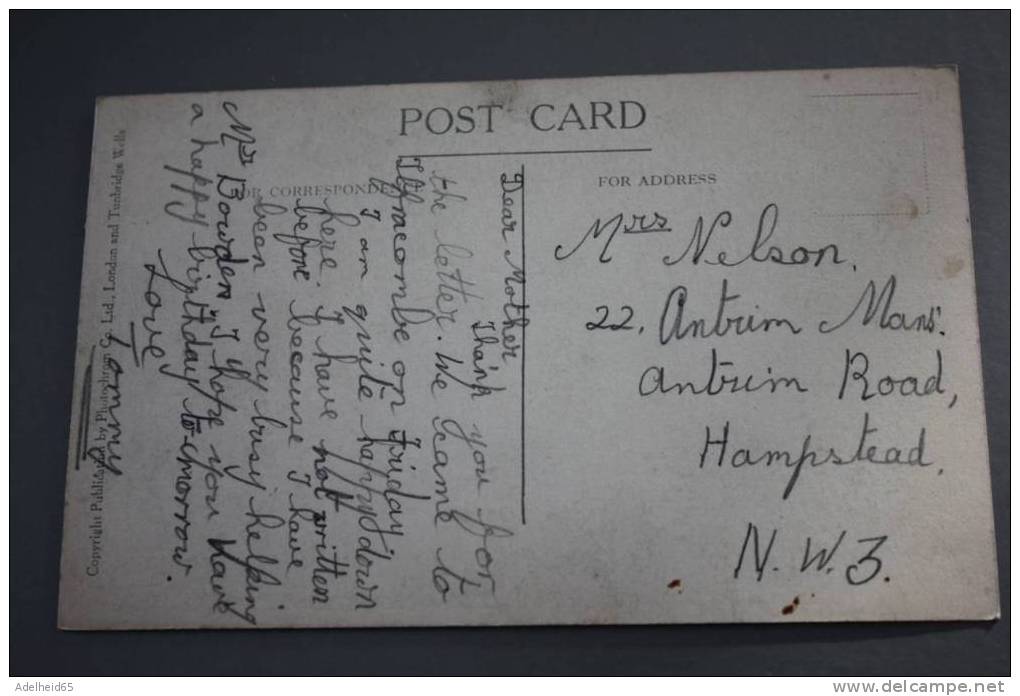 POST CARD
FOR CORRESPONDENCE
FOR ADDRESS
Dear Mother
Thank you for
the letter. We came to
Ilfracombe on Friday
I an quite happy down
here. I have not written
before because I have
been very busy helping
Mrs Bowden, I hope you have
a happy birthday to-morrow.
Love
Tommy
Mrs Nelson.
22. Antrim Mans.
Antrim Road,
Hampstead.
N. W. 3.
Copyright Published by Photochrom Co. Ltd., London and Tunbridge Wells
Adelheid65
www.delcampe.net